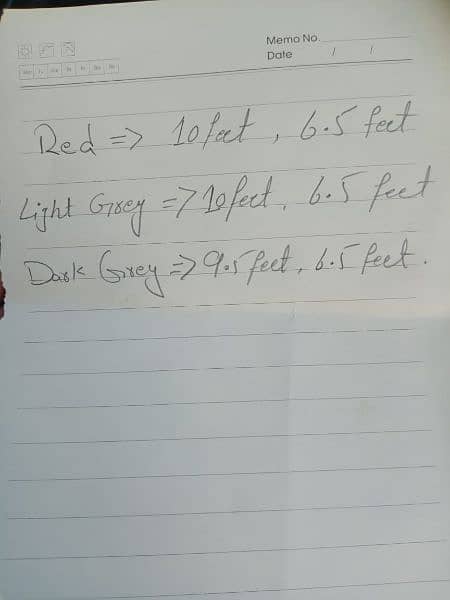 Memo No.
Date / /
Red => 10 feet , 6.5 feet
Light Grey => 10 feet , 6.5 feet
Dark Grey => 9.5 feet , 6.5 feet .